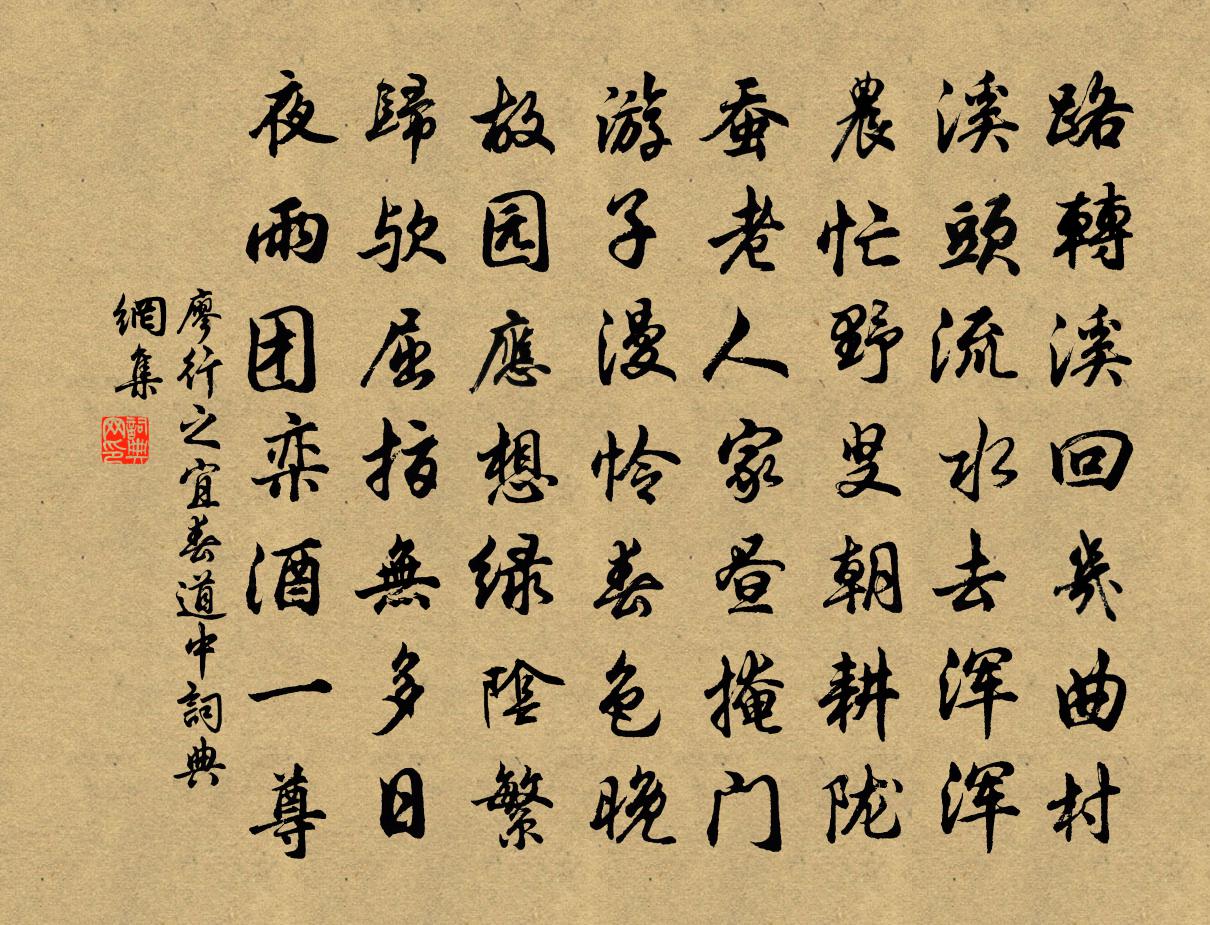 路轉溪回幾曲村
溪頭流水去浑浑
農忙野叟朝耕陇
蚕老人家昼掩门
游子漫怜春色晚
故园應想绿陰繁
歸欤屈指無多日
夜雨团栾酒一尊
廖行之宜春道中詞典
網集
詞典
网印